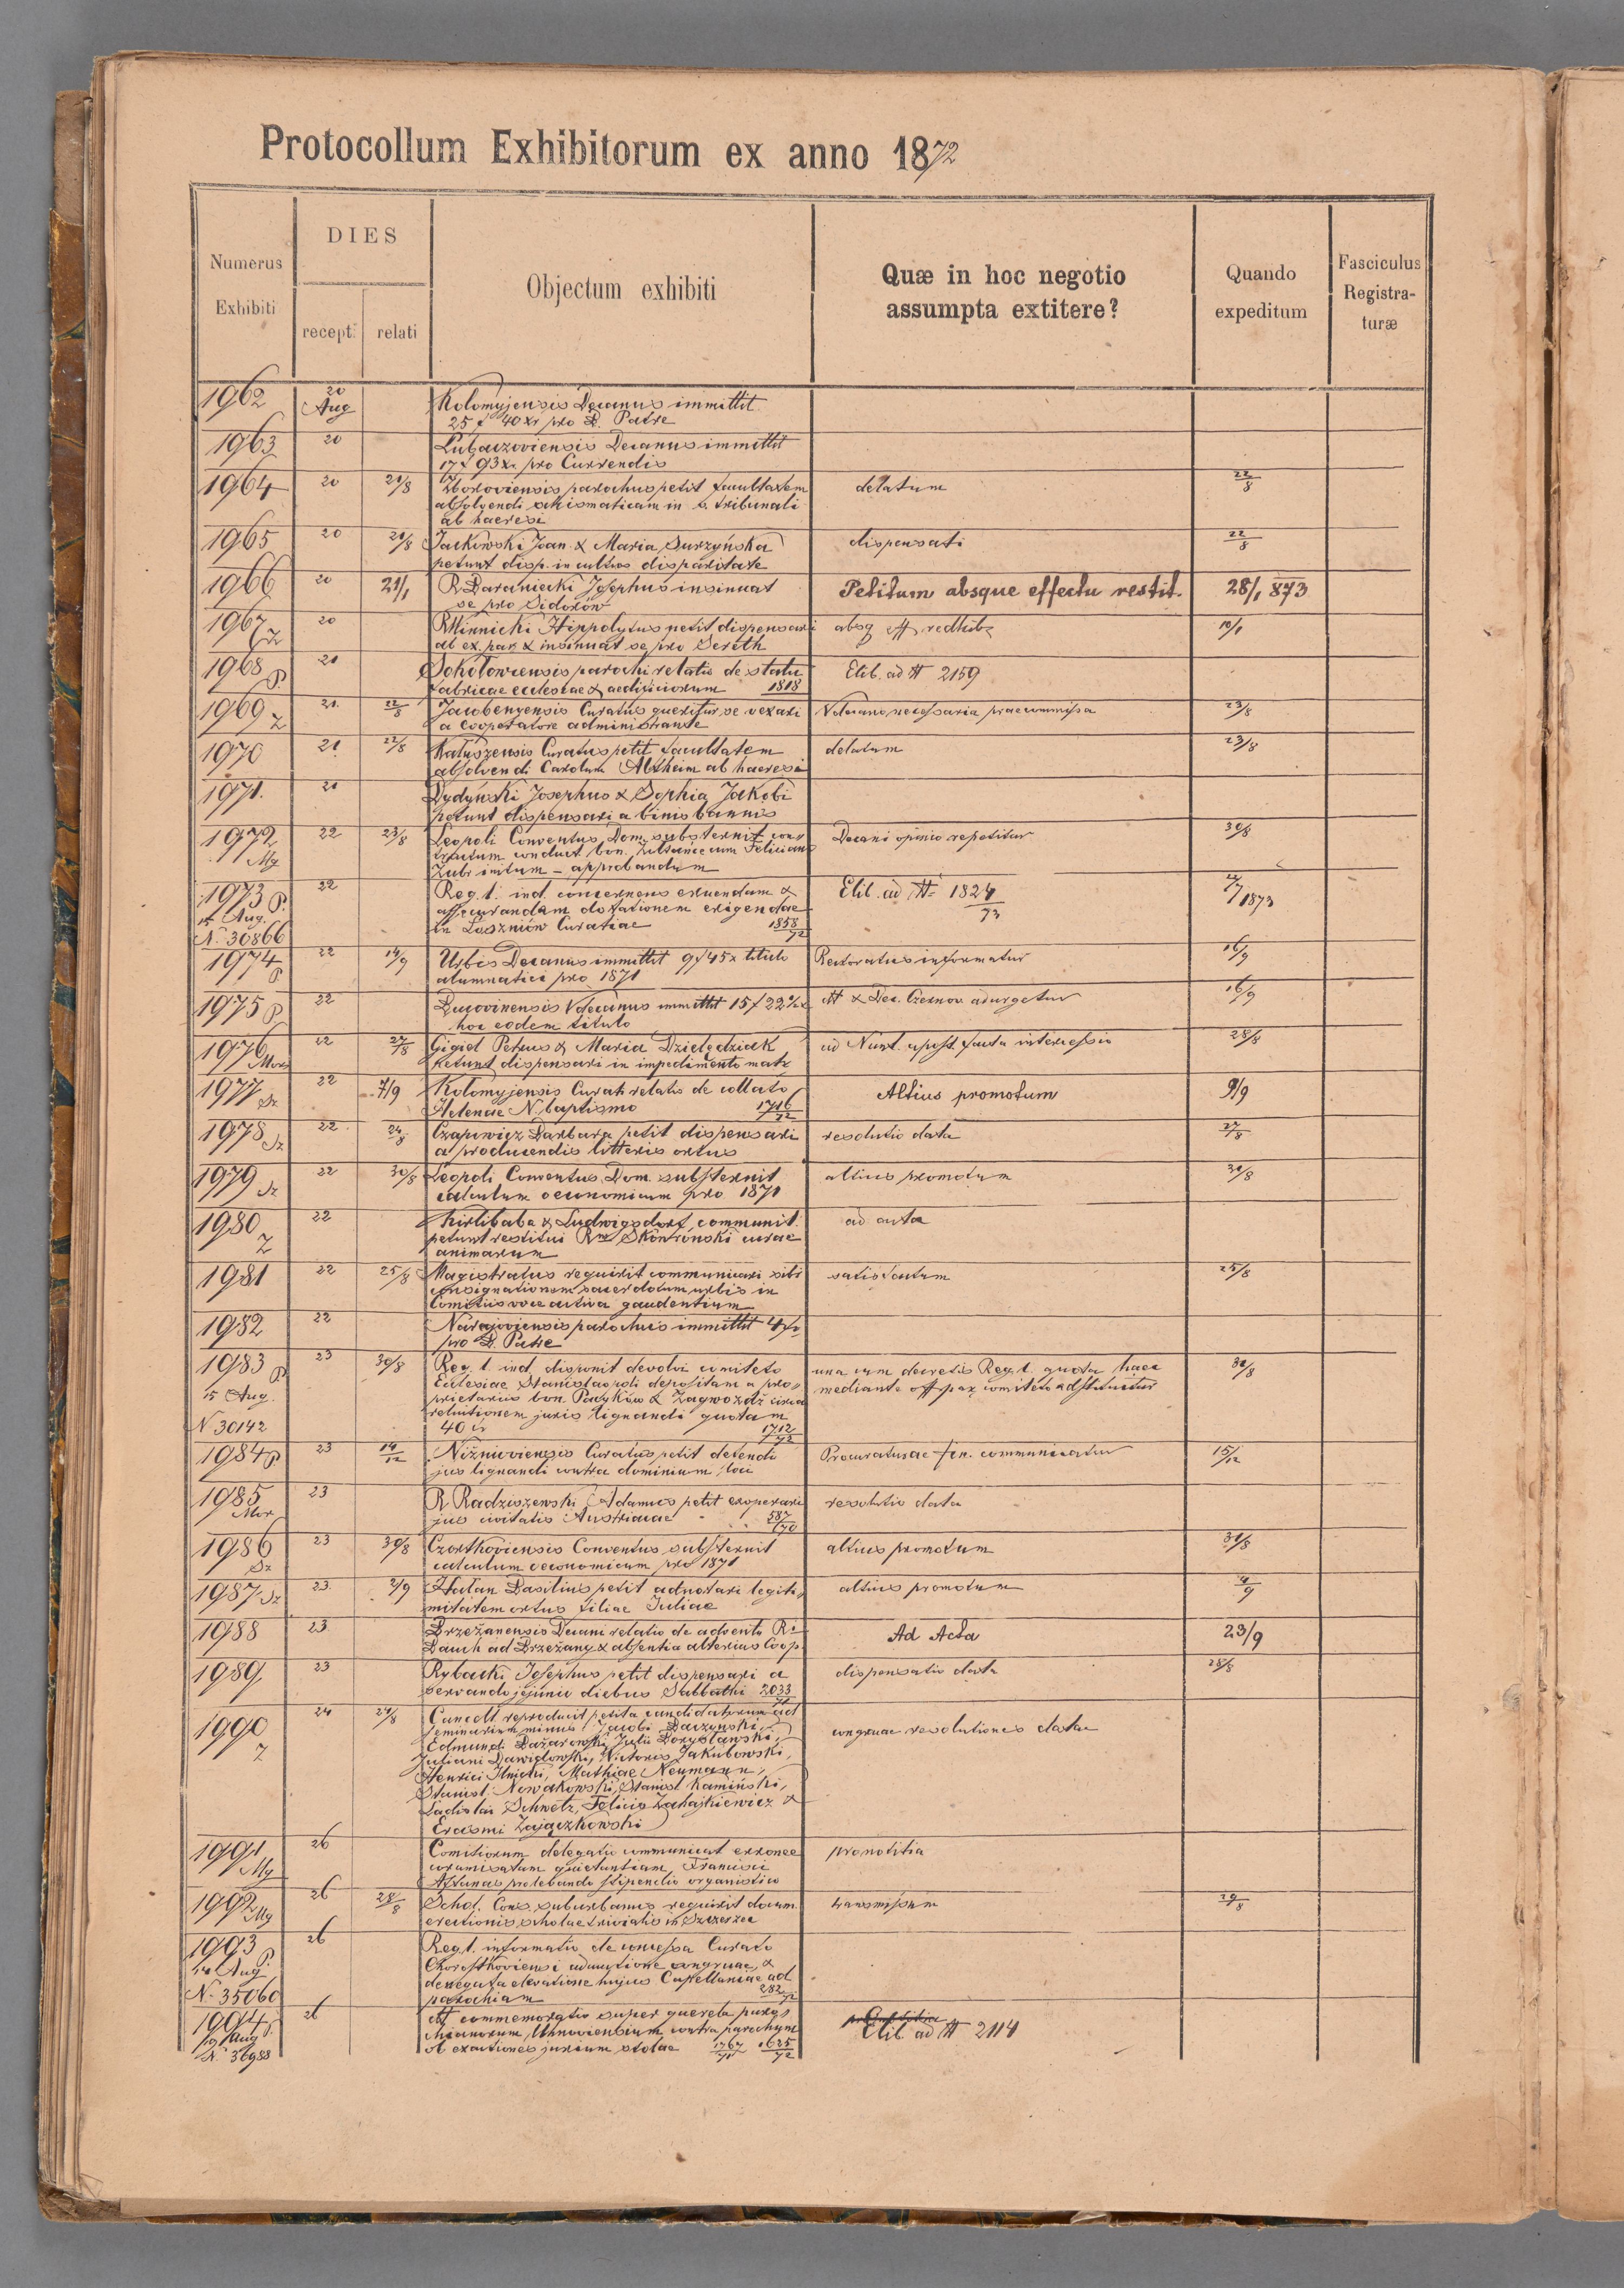 Protocollum Exhibitorum ex anno 1872
Numerus Exhibiti
DIES
recept. relati
Objectum exhibiti
Quæ in hoc negotio assumpta extitere?
Quando expeditum
Fasciculus Registra- turæ
1962 20 Aug Kolomyjensis Decanus immittit
25 f 40 xr pro S. Patre
1963 20 Lubaczoviensis Decanus immittit
17 f 93 xr. pro Currendis
1964 20 21/8 parochus petit facultatem delatum 22/8
absolvendi schismaticam in s. tribunali
ab haeresi
1965 20 21/8 Jackowski Joan. & Maria Surzyńska dispensati 22/8
petunt disp. in cultus disparitate
1966 20 21/1 R. Baraniecki Josephus insinuat Petitum absque effectu restit. 28/1 873
se pro Sidorów
1967 Z 20 R. Winnicki Hippolytus petit dispensari absq eff. redhib. 10/1
ab ex. par. & insinuat se pro Sereth
1968 P. 21 Sokołowiensis parochi relatio de statu Elib. ad N 2159
fabricae ecclesiae & aedificiorum 1818
1969 Z 21. 22/8 Jacobenyensis Curatus queritur se vexari Vdecano necessaria praecommissa 23/8
a Cooperatore administrante
1970 21 22/8 Kałuszensis Curatus petit facultatem delatum 23/8
absolvendi Carolum Altheim ab haeresi
1971. 21 Dydyński Josephus & Sophia Jakobi
petunt dispensari a binis bannis
1972 Mg 22 23/8 Leopoli Conventus Dom. substernit con- Decani opinio repetitur 30/8
tractum conduct. bon. cum Felician
Zubr initum – approbandum
1973 P. 22 Reg. t. ind. concernens eruendam & Elib. ad N. 1824/73 /1873
15 Aug. assecurandam dotationem erigendae
N. 30866 in Łoszniow Curatiae 1858/72
1974 P 22 14/9 Urbis Decanus immittit 9 f 45 x titulo Rectoratus informatur 16/9
alumnatici pro 1871
1975 P 22 Bucovinensis Vdecanus immittit 15 f 22 ½ x N & Dec. Czernov. adurgetur 16/9
hoc eodem titulo
1976 Mor 22 27/8 Gigiel Petrus & Maria Dzielędziak ad Nunt. apost. facta intercessio 28/8
petunt dispensari in impedimento matr
1977 Sz 22 7/9 Kolomyjensis Curati relatio de collato Altius promotum 9/9
Helenae N. baptismo 1716/72
1978 Sz 22 24/8 Czapowicz Barbara petit dispensari resolutio data 27/8
a producendis litteris ortus
1979 Sz 22 30/8 Leopoli Conventus Dom. substernit altius promotum 30/8
calculum oeconomicum pro 1871
1980 Z 22 Kirlibaba & Ludwigsdorf communit. ad acta
petunt restitui Rm Skontronski curae
animarum
1981 22 25/8 Magistratus requirit communicari sibi satisfactum 25/8
consignationem sacerdotum urbis in
Comitiis voce activa gaudentium
1982 22 Narajoviensis parochus immittit 4 f
pro S. Patre
1983 P 23 30/8 Reg. t. ind. disponit devolvi comiteto una cum decretis Reg. t. quota haec 30/8
15 Aug. Ecclesiae Stanislaopoli depositam a pro- mediante off. par. comiteto adstituitur
prietariis bon. Pacyków & Zagwoźdź circa
reluitionem juris lignandi quotam
N 30142 40 1712/72
1984 P 23 14/12 Niżnioviensis Curatus petit defendi Procuraturae fin. communicatur 15/12
jus lignandi contra dominium loci
1985 Mor 23 R. Radziszewski Adamus petit exoperari resolutio data
jus civitatis Austriacae 587/70
1986 Sz 23 30/8 Czortkoviensis Conventus substernit altius promotum 30/8
calculum oeconomicum pro 1871
1987 Sz 23. 2/9 Hałan Basilius petit adnotari legiti- altius promotum 4/9
mitatem ortus filiae Juliae
1988 23 Brzeżanensis Decani relatio de adventu Ri Ad Acta 23/9
Bauch ad Brzeżany & absentia alterius Coop.
1989. 23 Rybacki Josephus petit dispensari a dispensatio data 28/8
servando jejunio diebus Sabbathi 2033
1990 Z 24 24/8 Cancell. reproducit petita candidatorum ad congruae resolutiones datae
seminarium minus: Jacobi Baczyński,
Edmundi Bażarowski, Julii Borysławski,
Juliani Dawidowski, Victoris Jakubowski,
Henrici Ilnicki, Mathiae Neumann,
Stanisl. Nowakowski, Stanisl. Kamiński,
Ladislai Schwetz, Felicis Zahajkiewicz &
Erasmi Zajączkowski
1991 Mg 26 Comitiorum delegatio communicat erronee pro notitia
quietantiam Francisci
pro levando stipendio organistico
1992 Mg 26 28/8 Schol. Cons. suburbanus requirit docum. transmissum 29/8
erectionis scholae trivialis in Szczerzec
1993 P 26 Reg. t. informatio de concessa Curato
14 Aug. Chorostkoviensi adauctione congruae, &
denegata elevatione hujus Capellaniae ad
N. 35060 parochiam 282/72
1994 P. 26 N commemoratio super querela paro- Elib. ad N 2114
19 Aug chianorum Uhnoviensium contra parochum
N. 36988 ob exactiones jurium stolae 1767/71 1625/72